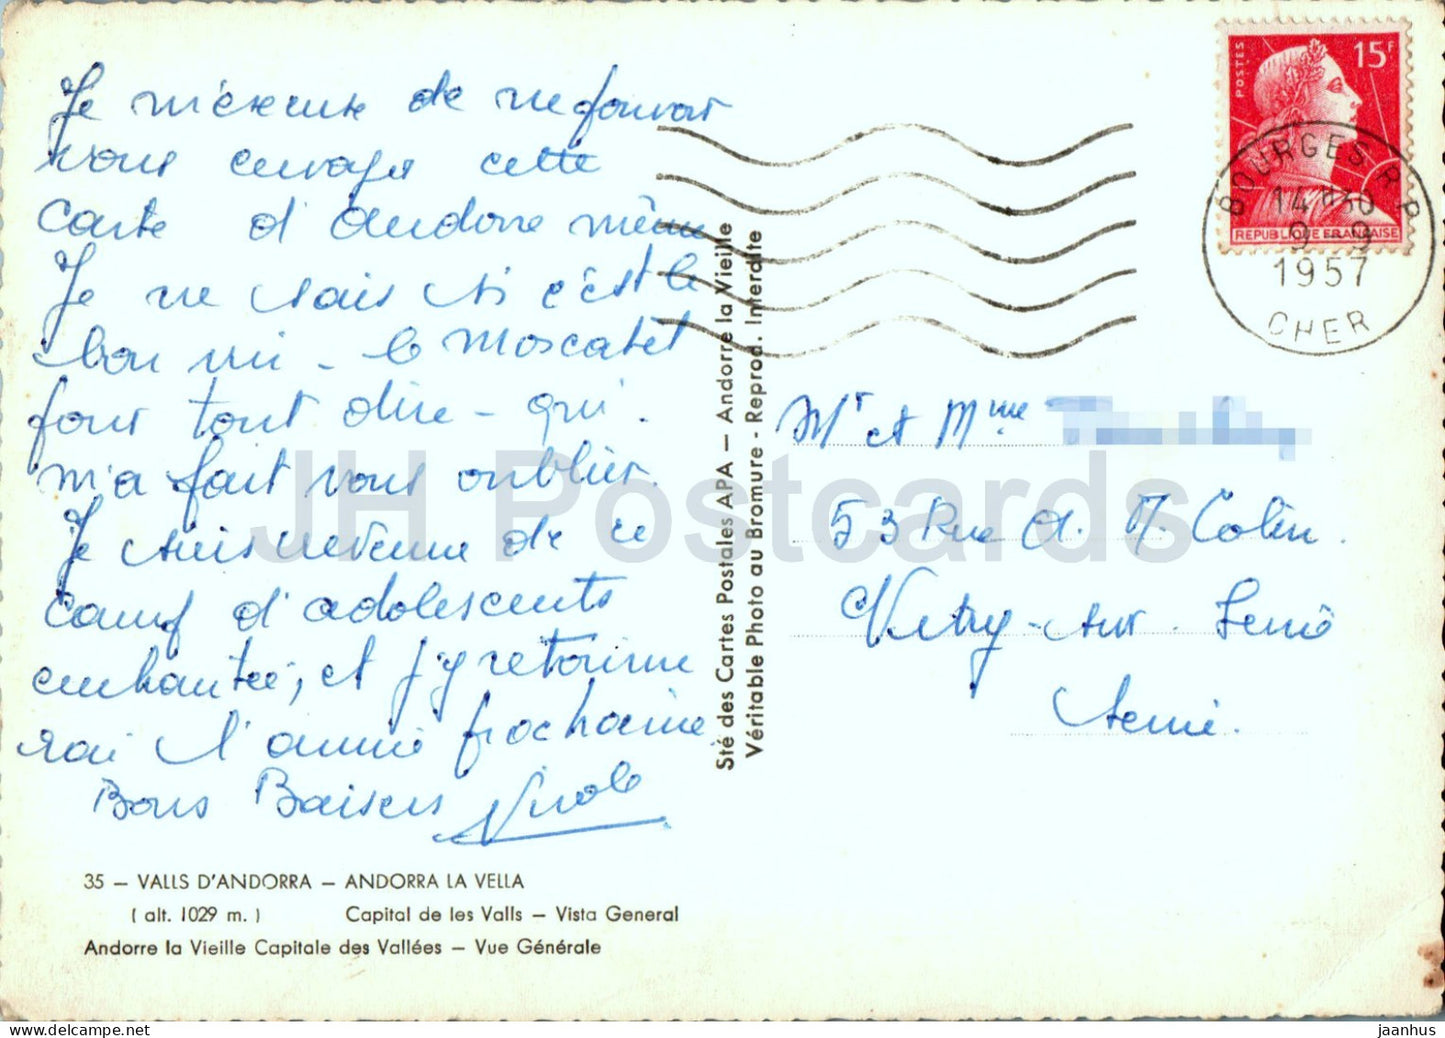 Je m'excuse de ne pouvoir
vous envoyer cette
carte d'Andorre même
Je ne sais si c'est le
bon vin - le Moscatel
pour tout dire - qui
m'a fait vous oublier.
Je suis revenue de ce
camp d'adolescents
enchantée, et j'y retourne
rai l'année prochaine
Bons Baisers Nicole
35 — VALLS D'ANDORRA — ANDORRA LA VELLA
( alt. 1029 m. ) Capital de les Valls — Vista General
Andorre la Vieille Capitale des Vallées — Vue Générale
Sté des Cartes Postales APA — Andorre la Vieille
Véritable Photo au Bromure - Reprod. Interdite
POSTES
15F
REPUBLIQUE FRANÇAISE
BOURGES R.P
14H30
9-9
1957
CHER
Mr et Mme
53 Rue A. M. Colin.
Vitry-sur-Seine
Seine.
JH Postcards
jaanhus
delcampe.net